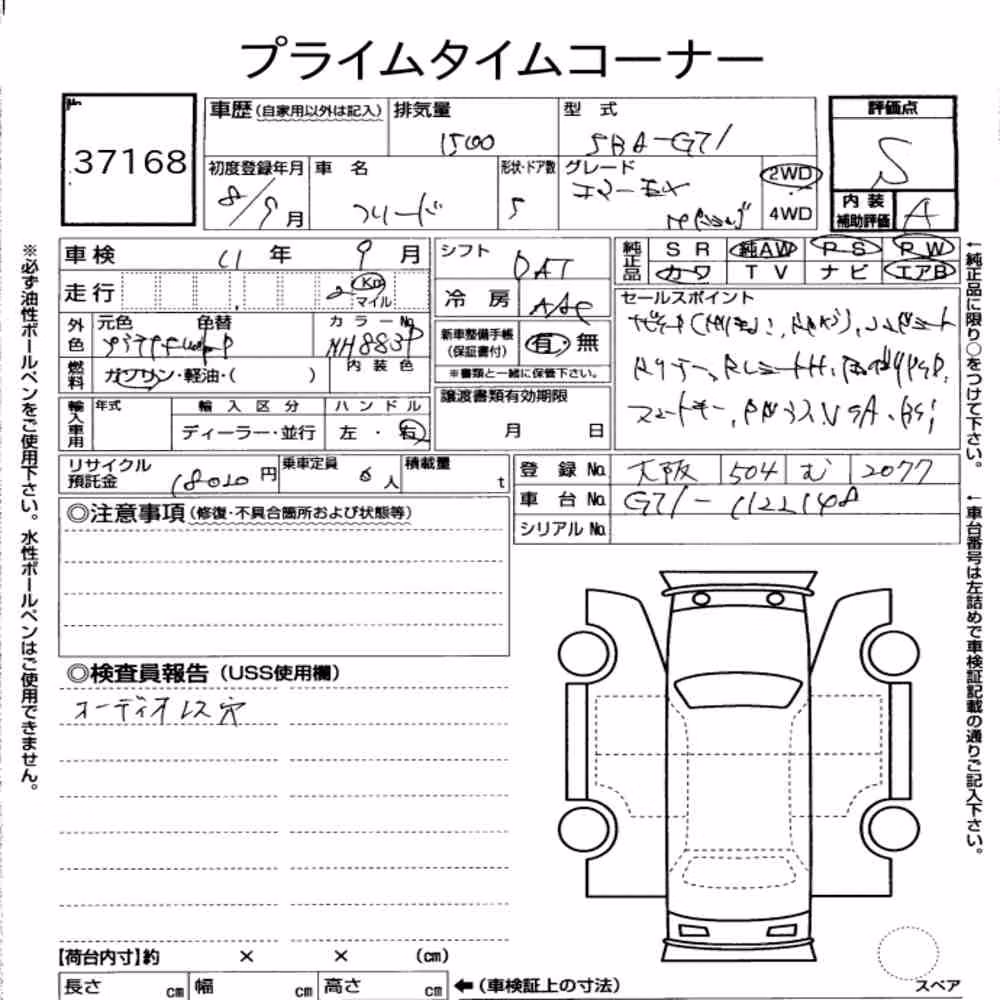 プライムタイムコーナー
37168
車歴 (自家用以外は記入)
排気量
1500
型 式
5BA-G71
評価点
S
内装
補助評価
A
初度登録年月
8/9月
車 名
フリード
形状・ドア数
5
グレード
エアーEX
2WD
4WD
車検 11 年 9 月
走行
2
Km
マイル
外色
元色
色替
カラーNo.
NH883P
燃料
ガソリン・軽油・( )
内装色
輸入車用
年式
輸入区分
ディーラー・並行
ハンドル
左・右
シフト
DAT
冷房
AAC
新車整備手帳
(保証書付)
有・無
※書類と一緒に保管下さい。
譲渡書類有効期限
月 日
純正品
SR 純AW PS PW
カーワ TV ナビ エアB
セールスポイント
リサイクル
預託金
18020 円
乗車定員
6 人
積載量
t
登録No. 大阪 504 む 2077
車台No. G71-1122148
シリアルNo.
◎注意事項(修復・不具合箇所および状態等)
◎検査員報告(USS使用欄)
オーディオレス穴
【荷台内寸】約 × × (cm)
長さ cm 幅 cm 高さ cm
←(車検証上の寸法)
スペア
※必ず油性ボールペンをご使用下さい。水性ボールペンはご使用できません。
←純正品に限り○をつけて下さい。
←車台番号は左詰めで車検証記載の通りご記入下さい。